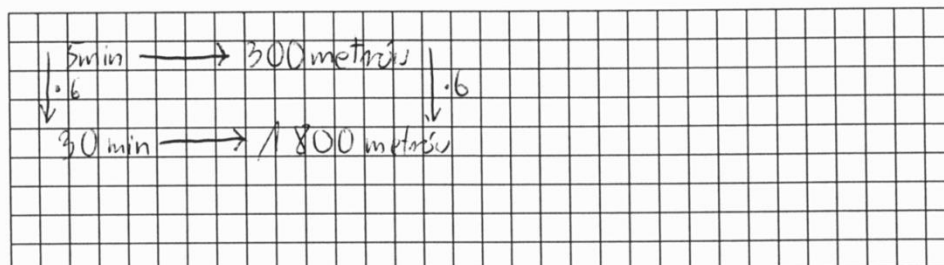 5min → 300 metrów
↓·6 ↓·6
30 min → 1800 metrów